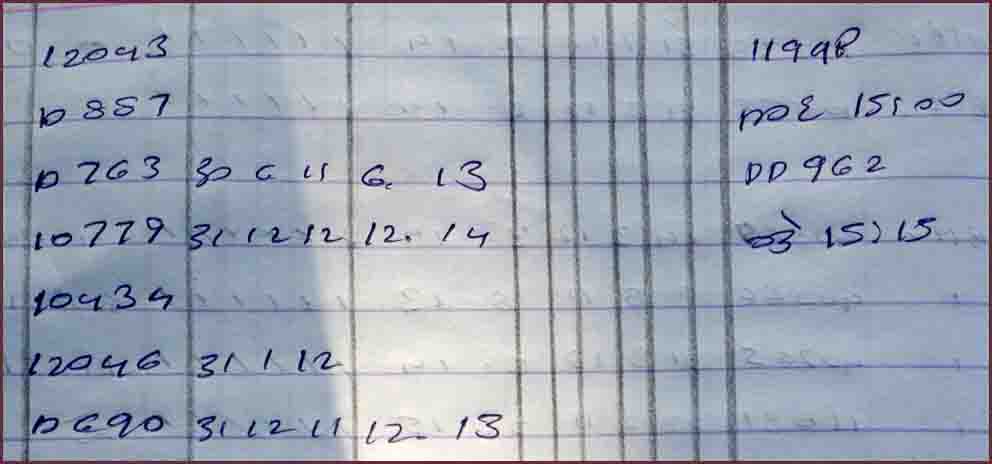 12043 11998
10857 15:00
10763 30 6 11 6. 13 DD 962
10779 31 12 12 12. 14 15:15
10434
12046 31 1 12
10690 31 12 11 12. 13